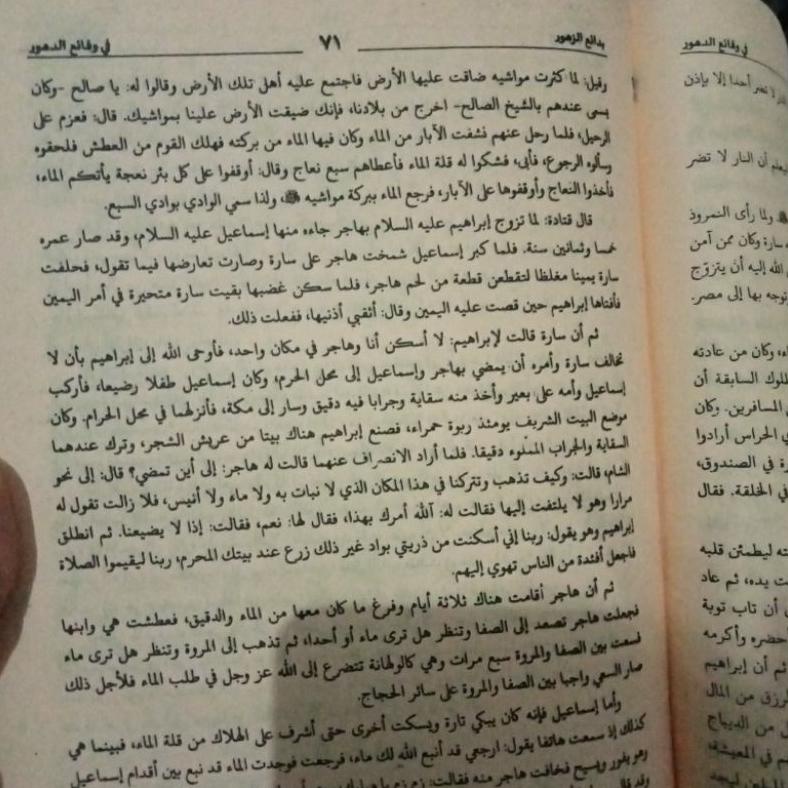 في وقائع الدهور
٧١
بدائع الزهور
وقيل: لما كثرت مواشيه ضاقت عليها الأرض فاجتمع عليه أهل تلك الأرض وقالوا له: يا صالح -وكان
يسمى عندهم بالشيخ الصالح- اخرج من بلادنا، فإنك ضيقت الأرض علينا بمواشيك. قال: فعزم على
الرحيل، فلما رحل عنهم نشفت الآبار من الماء وكان فيها الماء من بركته فهلك القوم من العطش فلحقوه
وسألوه الرجوع، فأبى، فشكوا له قلة الماء فأعطاهم سبع نعاج وقال: أوقفوا على كل بئر نعجة يأتكم الماء،
فأخذوا النعاج وأوقفوها على الآبار، فرجع الماء ببركة مواشيه ﷺ، ولذا سمي الوادي بوادي السبع.
قال قتادة: لما تزوج إبراهيم عليه السلام بهاجر جاءه منها إسماعيل عليه السلام، وقد صار عمره
خمسا وثمانين سنة. فلما كبر إسماعيل شمخت هاجر على سارة وصارت تعارضها فيما تقول، فحلفت
سارة يمينا مغلظا لتقطعن قطعة من لحم هاجر، فلما سكن غضبها بقيت سارة متحيرة في أمر اليمين
فأفتاها إبراهيم حين قصت عليه اليمين وقال: أثقبي أذنيها، ففعلت ذلك.
ثم أن سارة قالت لإبراهيم: لا أسكن أنا وهاجر في مكان واحد، فأوحى الله إلى إبراهيم بأن لا
تخالف سارة وأمره أن يمضي بهاجر وإسماعيل إلى محل الحرم، وكان إسماعيل طفلا رضيعا، فأركب
إسماعيل وأمه على بعير وأخذ منه سقاية وجرابا فيه دقيق وسار إلى مكة، فأنزلهما في محل الحرام. وكان
موضع البيت الشريف يومئذ ربوة حمراء، فصنع إبراهيم هناك بيتا من عريش الشجر، وترك عندهما
السقاية والجراب المملوء دقيقا. فلما أراد الانصراف عنهما قالت له هاجر: إلى أين تمضي؟ قال: إلى نحو
الشام، قالت: وكيف تذهب وتتركنا في هذا المكان الذي لا نبات به ولا ماء ولا أنيس، فلا زالت تقول له
مرارا وهو لا يلتفت إليها فقالت له: آلله أمرك بهذا، فقال لها: نعم، فقالت: إذا لا يضيعنا. ثم انطلق
إبراهيم وهو يقول: ربنا إني أسكنت من ذريتي بواد غير ذلك زرع عند بيتك المحرم، ربنا ليقيموا الصلاة
فاجعل أفئدة من الناس تهوي إليهم.
ثم أن هاجر أقامت هناك ثلاثة أيام وفرغ ما كان معها من الماء والدقيق، فعطشت هي وابنها
فجعلت هاجر تصعد إلى الصفا وتنظر هل ترى ماء أو أحدا، ثم تذهب إلى المروة وتنظر هل ترى ماء
فسعت بين الصفا والمروة سبع مرات وهي كالولهانة تتضرع إلى الله عز وجل في طلب الماء فلأجل ذلك
صار السعي واجبا بين الصفا والمروة على سائر الحجاج.
وأما إسماعيل فإنه كان يبكي تارة ويسكت أخرى حتى أشرف على الهلاك من قلة الماء، فبينما هي
كذلك إذ سمعت هاتفا يقول: ارجعي قد أنبع الله لك ماء، فرجعت فوجدت الماء قد نبع بين أقدام إسماعيل
وهو يفور ويسيح فخافت هاجر منه فقالت: زم زم
في وقائع الدهور
أحدا إلا بإذن
أن النار لا تضر
ولما رأى النمروذ
سارة وكان ممن آمن
الله إليه أن يتزوّج
توجه بها إلى مصر.
وكان من عادته
الملوك السابقة أن
المسافرين. وكان
الحراس أرادوا
في الصندوق،
في الخلقة. فقال
ليطمئن قلبه
يده، ثم عاد
أن تاب توبة
أحضره وأكرمه
ثم أن إبراهيم
الرزق من المال
من الديباج
في المعيشة